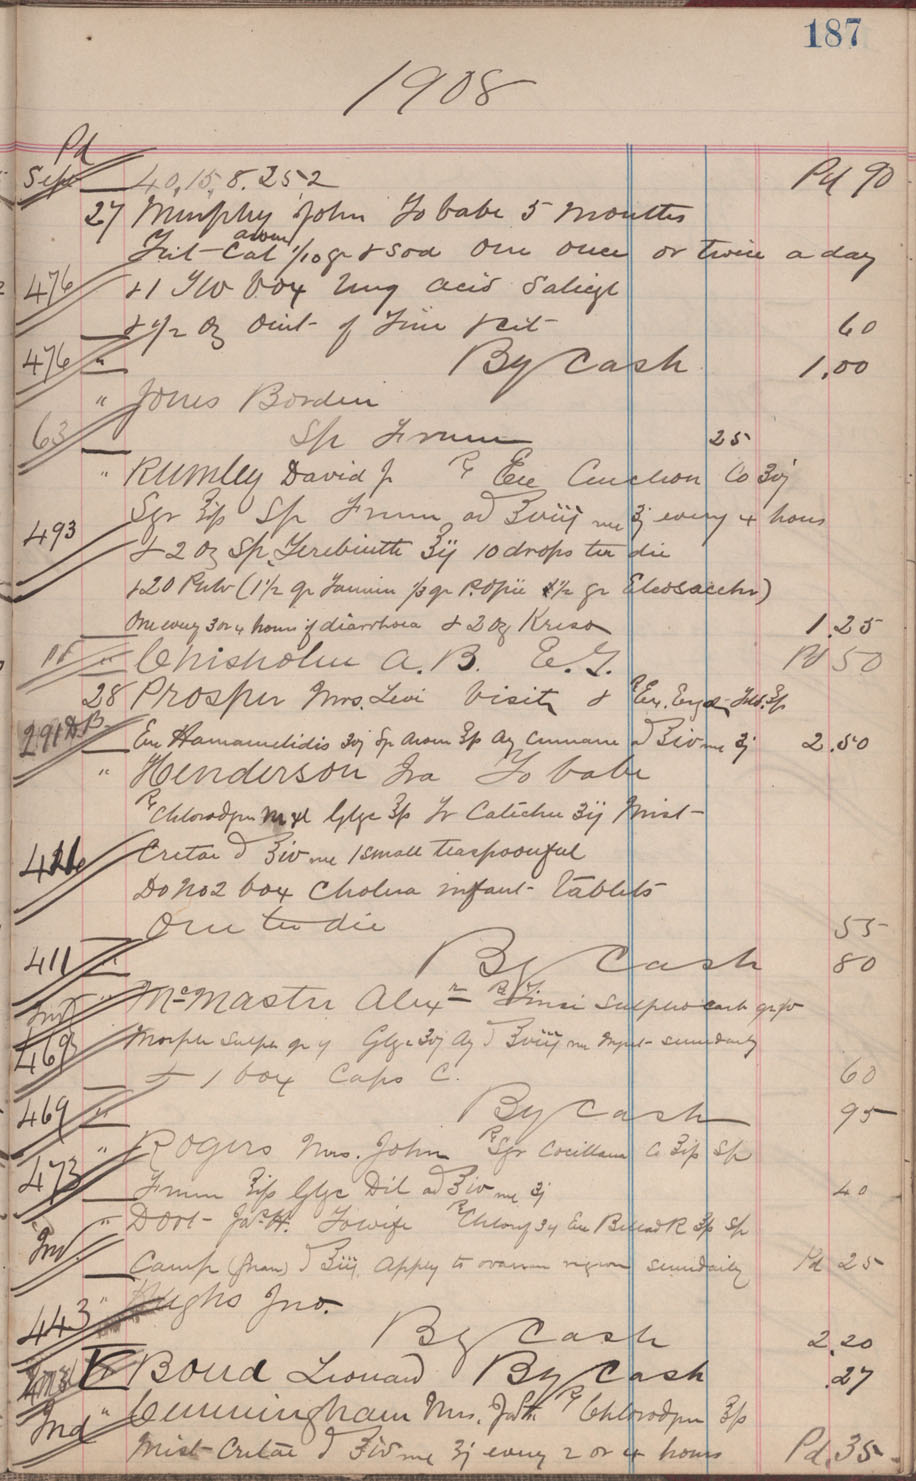 187
1908
Pd
Sept 40, 15, 8. 25 2 Pd 90
27 Murphy John To babe 5 months
Trit Cal arom 1/10 gr & Sod One once or twice a day
476 & 1 box Ung acid Salicyl
& 1/2 oz Oint of Zinc 60
476 " By Cash 1.00
" Jones Borden
63 Sp Frum 25
" Rumley David J ℞ Ext Co ʒvj
Syr Sp Frum ad every 4 hours
493 & 2 oz Sp. Terebinth ʒij 10 drops ter die
& 20 Pulv (1 1/2 gr Tannin 1/3 gr P. Opii 1/2 gr Eleosacchr)
One every 3 or 4 hours if diarrhoea & 2 oz Kreso 1.25
pd " Chisholm A. B. E. G. Pd 50
28 Prosper Mrs. Levi Visit & ℞ Ex. Ergot
291 Ex Hamamelidis ʒvj Sp Arom Aq Cinnam ad ʒiv ʒj 2.50
" Henderson Ira To babe
℞ Chlorodyn Glyc Tr Catechu ʒij Mist
426 Cretae ad ʒiv 1 small teaspoonful
Do No 2 box Cholera infant Tablets
One ter die 55
411 " By Cash 80
Ind " McMaster Alexr ℞ Zinci Sulpho carb
469 Morph Sulph gr Glyc ʒvj Aq ad semidaily
& 1 box Caps C. 60
469 " By Cash 95
" Rogers Mrs. John ℞ Syr Cocillana Co Sp
473 Frum Glyc Dil ad ʒiv ʒj 40
Ind " Doot Jas H. To wife ℞ Chlorof Ex Bellad R Sp
Camp ad Apply to ovarian region semidaily Pd 25
443 " Hughs Jno.
By Cash 2.20
Bond Leonard By Cash .27
Ind " Cunningham Mrs. ℞ Chlorodyn
Mist Cretae ad ʒiv ʒj every 2 or 4 hours Pd .35